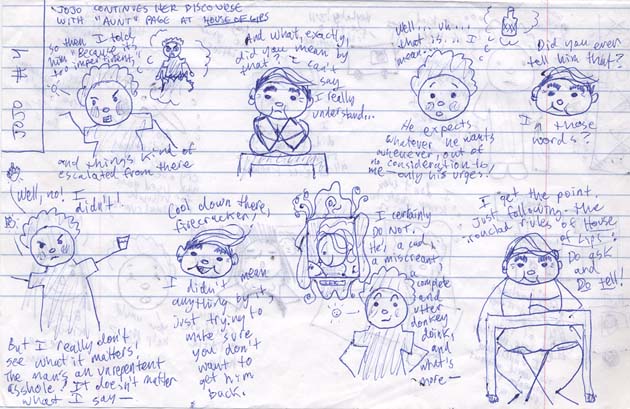 JOJO #4
JOJO CONTINUES HER DISCOURSE
WITH "AUNT" PAGE AT HOUSE OF LIPS
So then I told
him "Because it's
too impertinent,"
and things kind of
escalated from there
And what, exactly,
did you mean by
that? I can't
say
I really
understand...
Well... uh...
that is... I
mean...
He expects
whatever he wants
whenever, out of
no consideration to
me—only his urges!
Did you ever
tell him that?
In those
words?
Well, no! I
didn't!
But I really don't
see what it matters,
The man's an unrepentent
asshole! It doesn't matter
what I say—
Cool down there,
firecracker!
I didn't mean
anything by it,
just trying to
make sure
you don't
want to
get him
back.
I certainly
DO NOT.
He's a cad,
a miscreant,
a complete
and
utter
donkey
doink,
and
what's
more—
I get the point.
Just following the
ironclad rules of House
of Lips!
Do ask
and
Do tell!